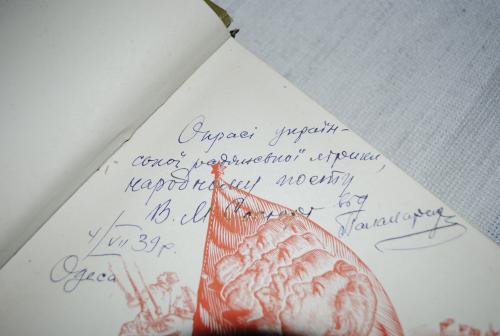 Окрасі україн-
ської радянської лірики
народному поету
В. М. від
4/VII 39 р.
Одеса